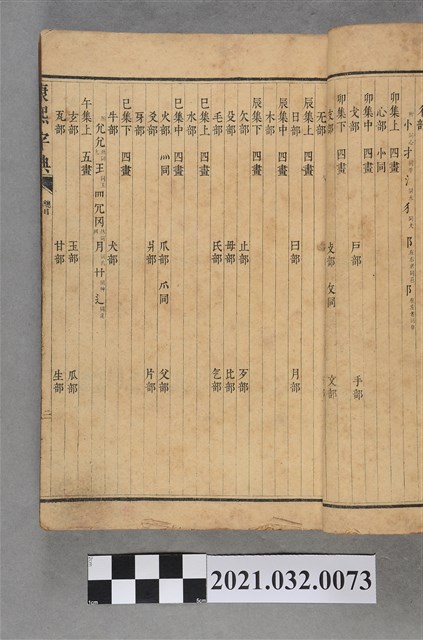 卯集上 四畫
心部 小同
卯集中 四畫
戈部 戶部 手部
卯集下 四畫
支部 攴部 攵同 文部
无部
辰集上 四畫
日部 曰部 月部
辰集中 四畫
木部
辰集下 四畫
欠部 止部 歹部
殳部 毋部 比部
毛部 氏部 气部
巳集上 四畫
水部
巳集中 四畫
火部 灬同 爪部 爫同 父部
爻部 爿部 片部
牙部
巳集下 四畫
牛部 犬部
午集上 五畫
玄部 玉部 瓜部
瓦部 甘部 生部
康熙字典 總目 二
2021.032.0073
1cm 5cm